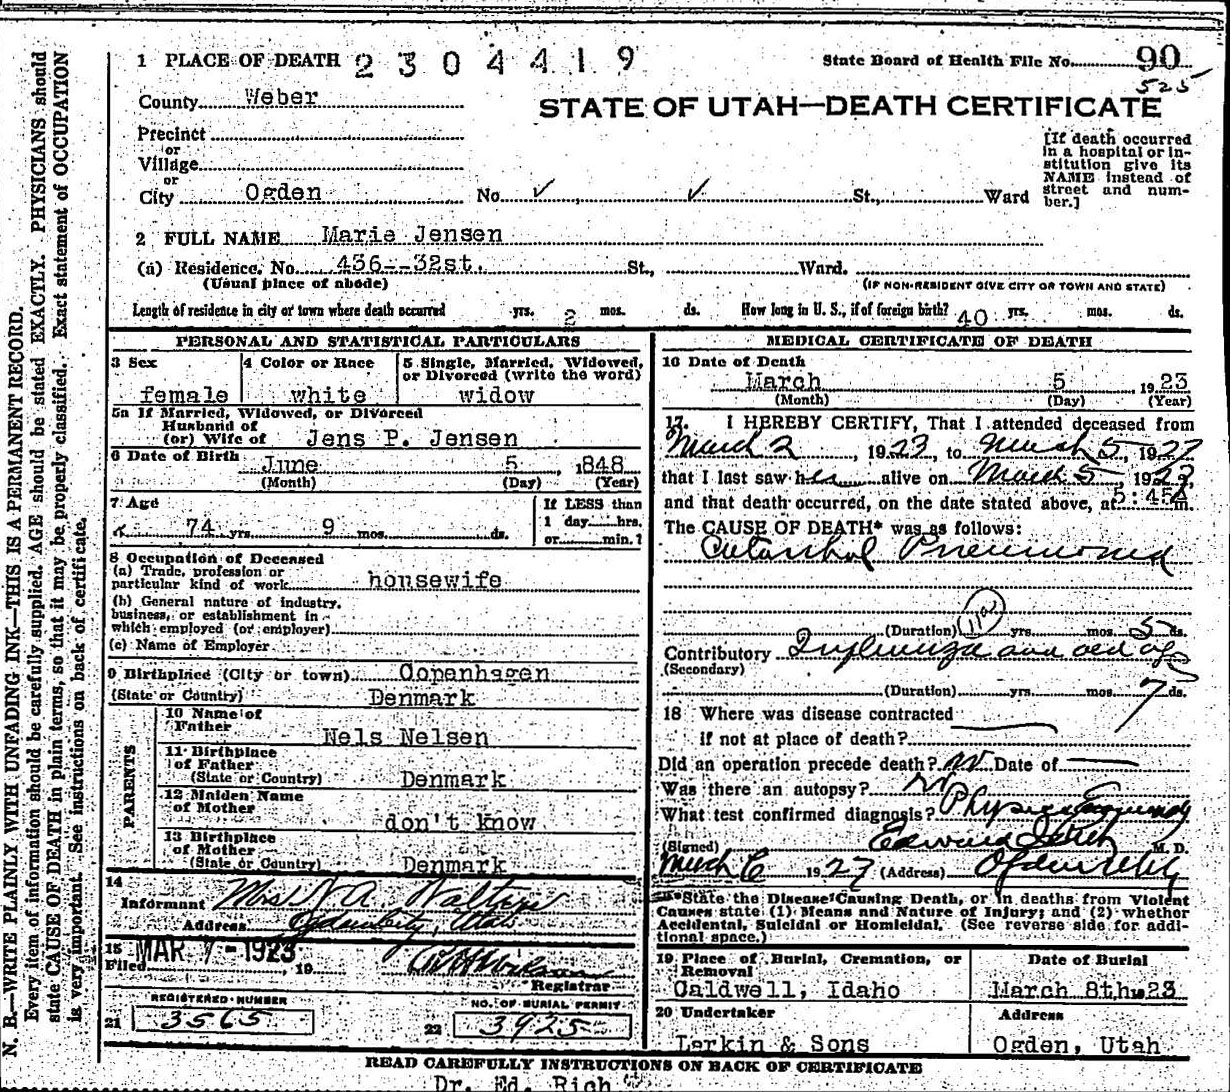 N. B.—WRITE PLAINLY WITH UNFADING INK—THIS IS A PERMANENT RECORD.
Every item of information should be carefully supplied. AGE should be stated EXACTLY. PHYSICIANS should
state CAUSE OF DEATH in plain terms, so that it may be properly classified. Exact statement of OCCUPATION
is very important. See instructions on back of certificate.
1 PLACE OF DEATH 2304419 State Board of Health File No. 90
525
County Weber
STATE OF UTAH—DEATH CERTIFICATE
Precinct
or
Village
or
City Ogden No. ✓, ✓ St., Ward
[If death occurred
in a hospital or in-
stitution give its
NAME instead of
street and num-
ber.]
2 FULL NAME Marie Jensen
(a) Residence. No. 436--32st. St., Ward.
(Usual place of abode) (IF NON-RESIDENT GIVE CITY OR TOWN AND STATE)
Length of residence in city or town where death occurred yrs. 2 mos. ds. How long in U. S., if of foreign birth? 40 yrs. mos. ds.
PERSONAL AND STATISTICAL PARTICULARS
3 Sex 4 Color or Race 5 Single, Married, Widowed,
or Divorced (write the word)
female white widow
5a If Married, Widowed, or Divorced
Husband of
(or) Wife of Jens P. Jensen
6 Date of Birth June 5, 1848
(Month) (Day) (Year)
7 Age If LESS than
1 day hrs.
74 yrs 9 mos. ds. or min.?
8 Occupation of Deceased
(a) Trade, profession or
particular kind of work housewife
(b) General nature of industry,
business, or establishment in
which employed (or employer)
(c) Name of Employer
9 Birthplace (City or town) Copenhagen
(State or Country) Denmark
PARENTS
10 Name of
Father Nels Nelsen
11 Birthplace
of Father
(State or Country) Denmark
12 Maiden Name
of Mother don't know
13 Birthplace
of Mother
(State or Country) Denmark
14
Informant Mrs A. Walters
Address Ogden City, Utah
15 MAR 7 - 1923
Filed, 19
Registrar
REGISTERED NUMBER NO. OF BURIAL PERMIT
21 3565 22 3925
MEDICAL CERTIFICATE OF DEATH
16 Date of Death
March 5, 1923
(Month) (Day) (Year)
17. I HEREBY CERTIFY, That I attended deceased from
March 2, 1923, to March 5, 1923
that I last saw her alive on March 5, 1923,
and that death occurred, on the date stated above, at 5:45A m.
The CAUSE OF DEATH* was as follows:
Catarrhal Pneumonia
(Duration) yrs. mos. 5 ds.
Contributory Influenza and old age
(Secondary)
(Duration) yrs. mos. 7 ds.
18 Where was disease contracted
if not at place of death?
Did an operation precede death? No Date of
Was there an autopsy? No
What test confirmed diagnosis? Physical
(Signed) Edward Rich M. D.
March 6 1923 (Address) Ogden Utah
*State the Disease Causing Death, or in deaths from Violent
Causes state (1) Means and Nature of Injury; and (2) whether
Accidental, Suicidal or Homicidal. (See reverse side for addi-
tional space.)
19 Place of Burial, Cremation, or
Removal
Caldwell, Idaho
Date of Burial
March 8th 23
20 Undertaker
Larkin & Sons
Address
Ogden, Utah
READ CAREFULLY INSTRUCTIONS ON BACK OF CERTIFICATE
Dr. Ed. Rich